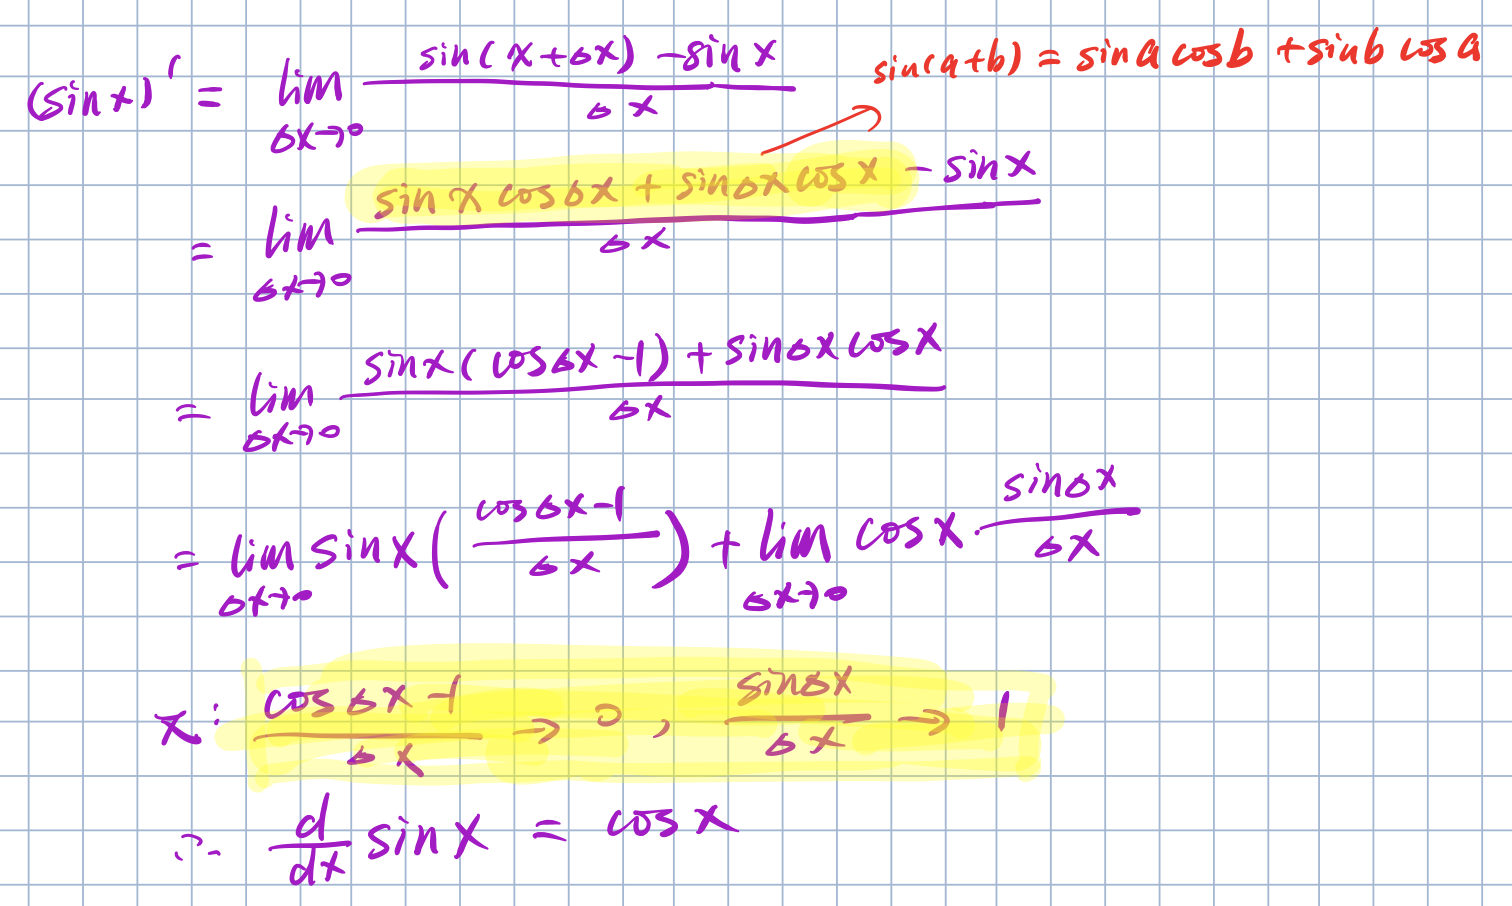 (sin x)' = lim Δx→0 (sin(x+Δx) - sin x) / Δx
sin(a+b) = sin a cos b + sin b cos a
= lim Δx→0 (sin x cos Δx + sin Δx cos x - sin x) / Δx
= lim Δx→0 (sin x (cos Δx - 1) + sin Δx cos x) / Δx
= lim Δx→0 sin x ((cos Δx - 1) / Δx) + lim Δx→0 cos x · (sin Δx) / Δx
(cos Δx - 1) / Δx → 0 , (sin Δx) / Δx → 1
∴ d/dx sin x = cos x